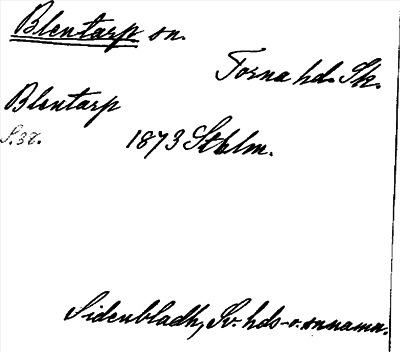 Blentarp sn.
Torna hd. Sk.
Blentarp
S. 32. 1873 Sthlm.
Sidenbladh, Sv. hds- o. snnamn.